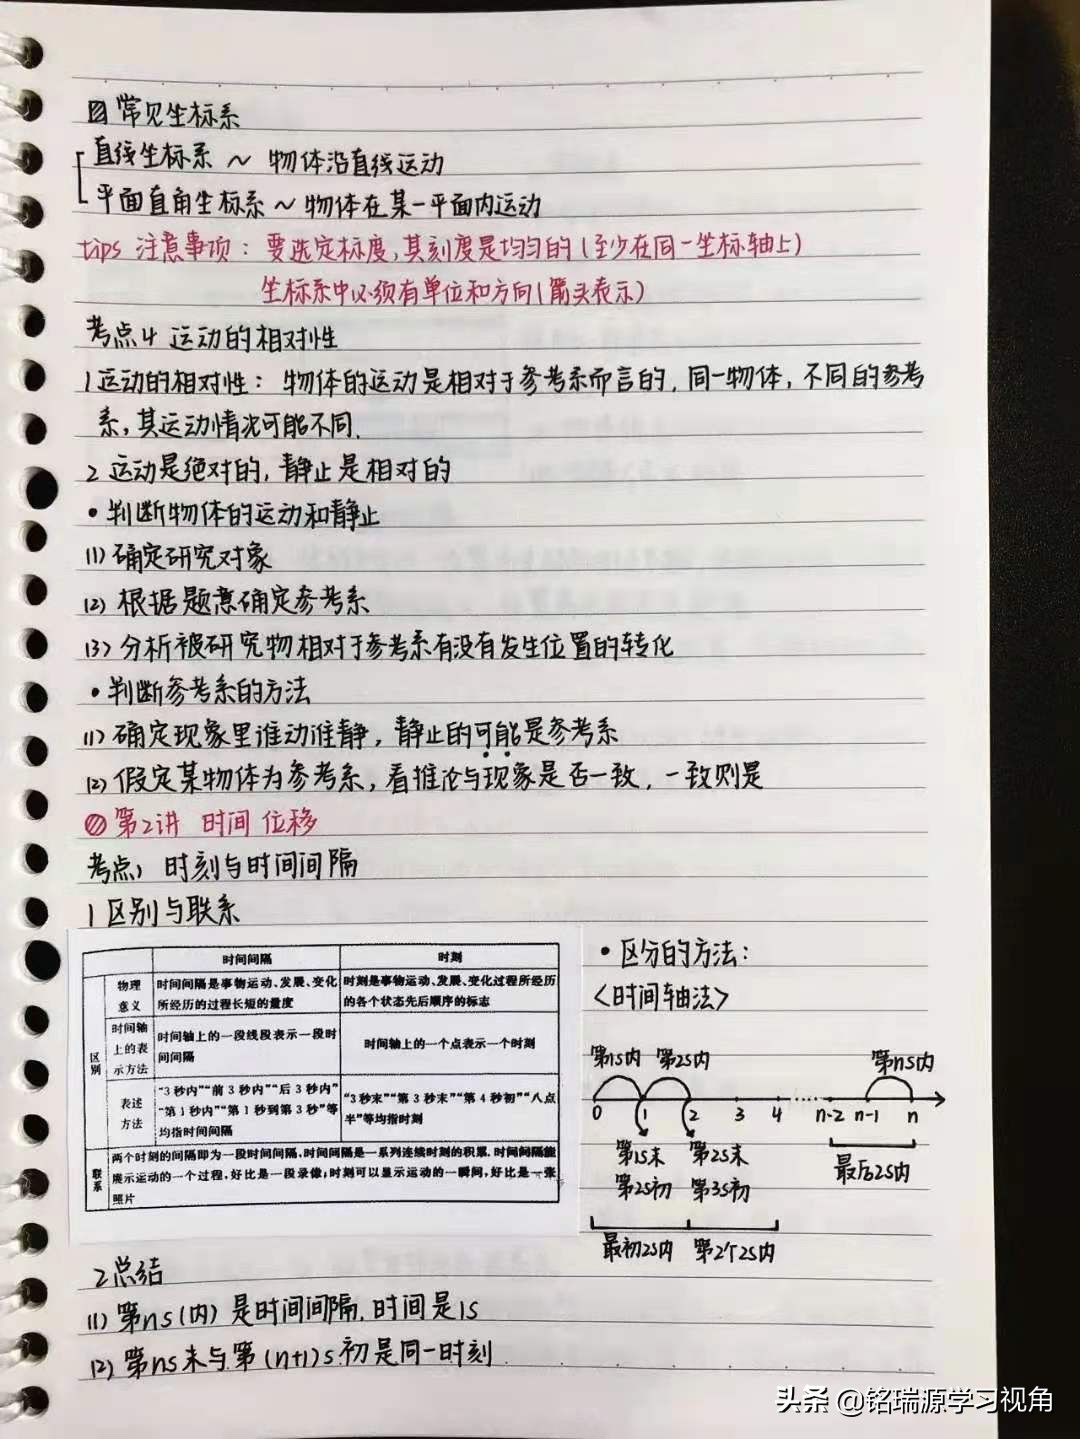 常见坐标系
直线坐标系 ~ 物体沿直线运动
平面直角坐标系 ~ 物体在某一平面内运动
tips 注意事项：要选定标度,其刻度是均匀的(至少在同一坐标轴上)
坐标系中必须有单位和方向(箭头表示)
考点4 运动的相对性
1 运动的相对性：物体的运动是相对于参考系而言的.同一物体，不同的参考
系,其运动情况可能不同.
2 运动是绝对的,静止是相对的
•判断物体的运动和静止
(1)确定研究对象
(2)根据题意确定参考系
(3)分析被研究物相对于参考系有没有发生位置的转化
•判断参考系的方法
(1)确定现象里谁动谁静，静止的可能是参考系
(2)假定某物体为参考系,看推论与现象是否一致，一致则是
第2讲 时间 位移
考点1 时刻与时间间隔
1 区别与联系
时间间隔 时刻
区别
物理意义
时间间隔是事物运动、发展、变化
所经历的过程长短的量度
时刻是事物运动、发展、变化过程所经历
的各个状态先后顺序的标志
时间轴
上的表
示方法
时间轴上的一段线段表示一段时
间间隔
时间轴上的一个点表示一个时刻
表述
方法
“3秒内”“前3秒内”“后3秒内”
“第1秒内”“第1秒到第3秒”等
均指时间间隔
“3秒末”“第3秒末”“第4秒初”“八点
半”等均指时刻
联系
两个时刻的间隔即为一段时间间隔,时间间隔是一系列连续时刻的积累.时间间隔能
展示运动的一个过程,好比是一段录像;时刻可以显示运动的一瞬间,好比是一张
照片
•区分的方法：
<时间轴法>
第1s内 第2s内 第ns内
0 1 2 3 4 …… n-2 n-1 n
第1s末 第2s末
第2s初 第3s初
最后2s内
最初2s内 第2个2s内
2 总结
(1)第ns(内)是时间间隔.时间是1s
(2)第ns末与第(n+1)s初是同一时刻
头条 @铭瑞源学习视角